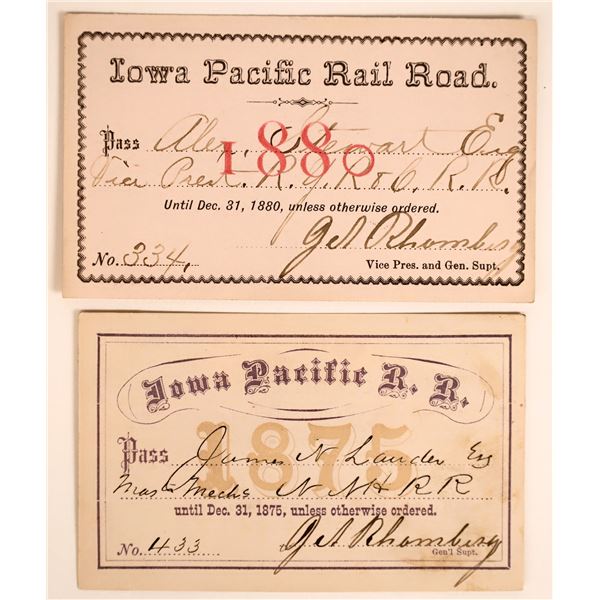 Iowa Pacific Rail Road.
1880
Pass Alex. Stewart Esq
Vice Prest. R. & O. R. R.
Until Dec. 31, 1880, unless otherwise ordered.
No. 334, Rhomberg
Vice Pres. and Gen. Supt.
Iowa Pacific R. R.
1875
Pass James N Lauder Esq
Mast Mechc N N H R R
until Dec. 31, 1875, unless otherwise ordered.
No. 433 Rhomberg
Gen'l Supt.